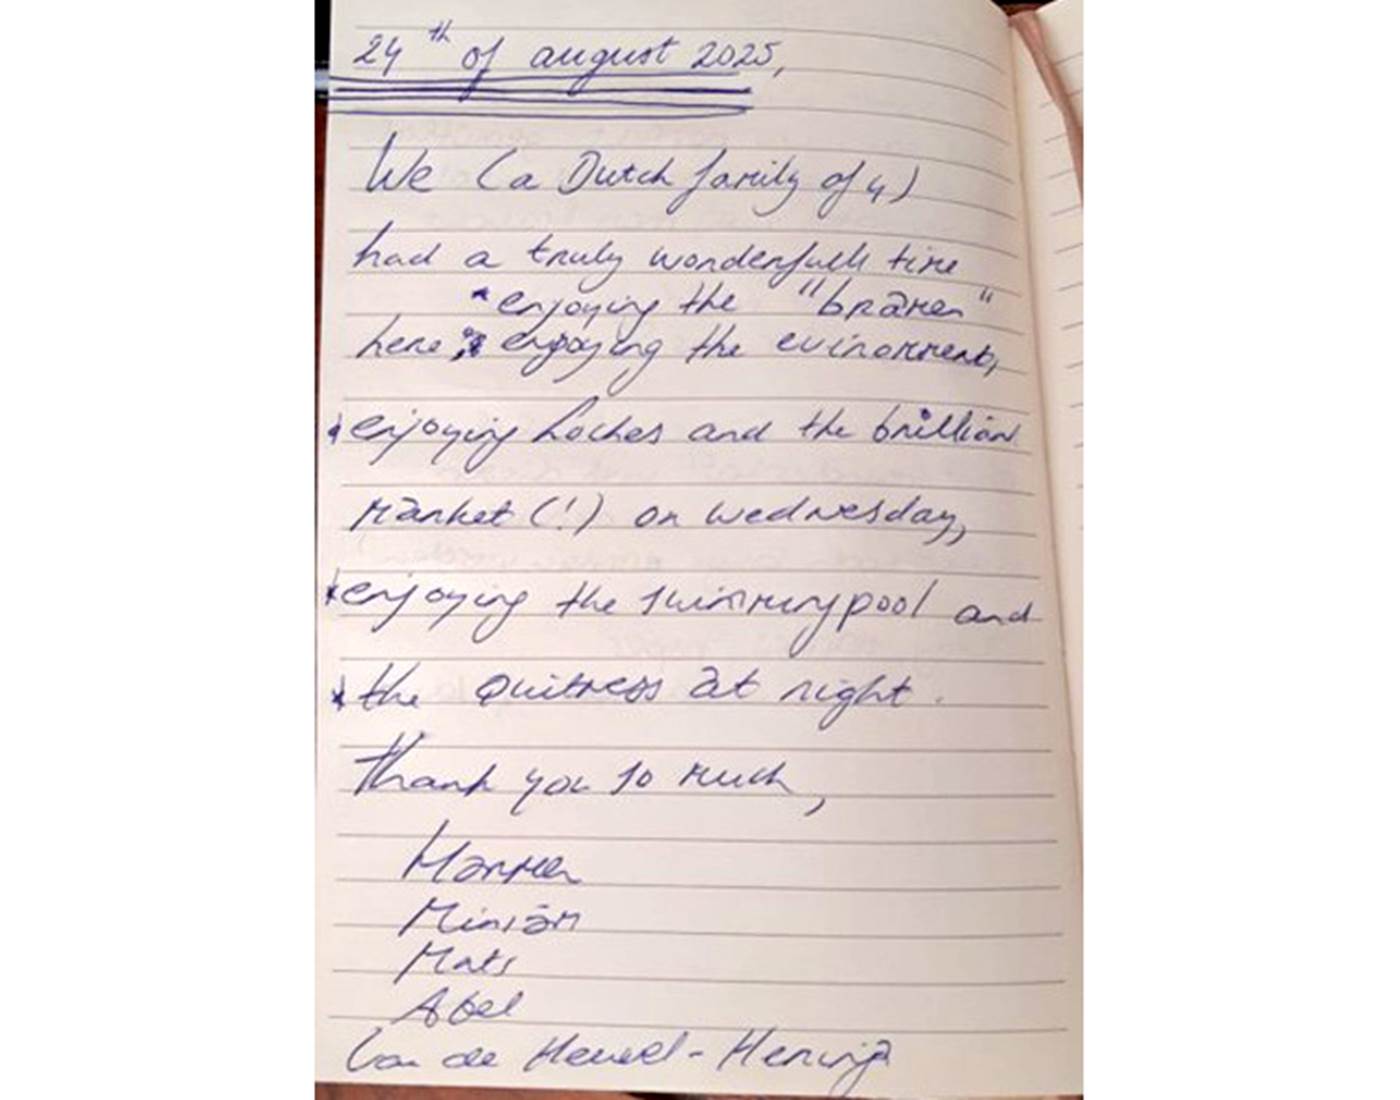 24th of august 2025,
We (a Dutch family of 4)
had a truly wonderfull time
*enjoying the "bramen"
here; enjoying the evinorment,
*enjoying Loches and the brilliant
market (!) on wednesday,
*enjoying the swimmingpool and
*the quitness at night.
Thank you so much,
Mirjam
Mats
Abel
Van de Heuvel-